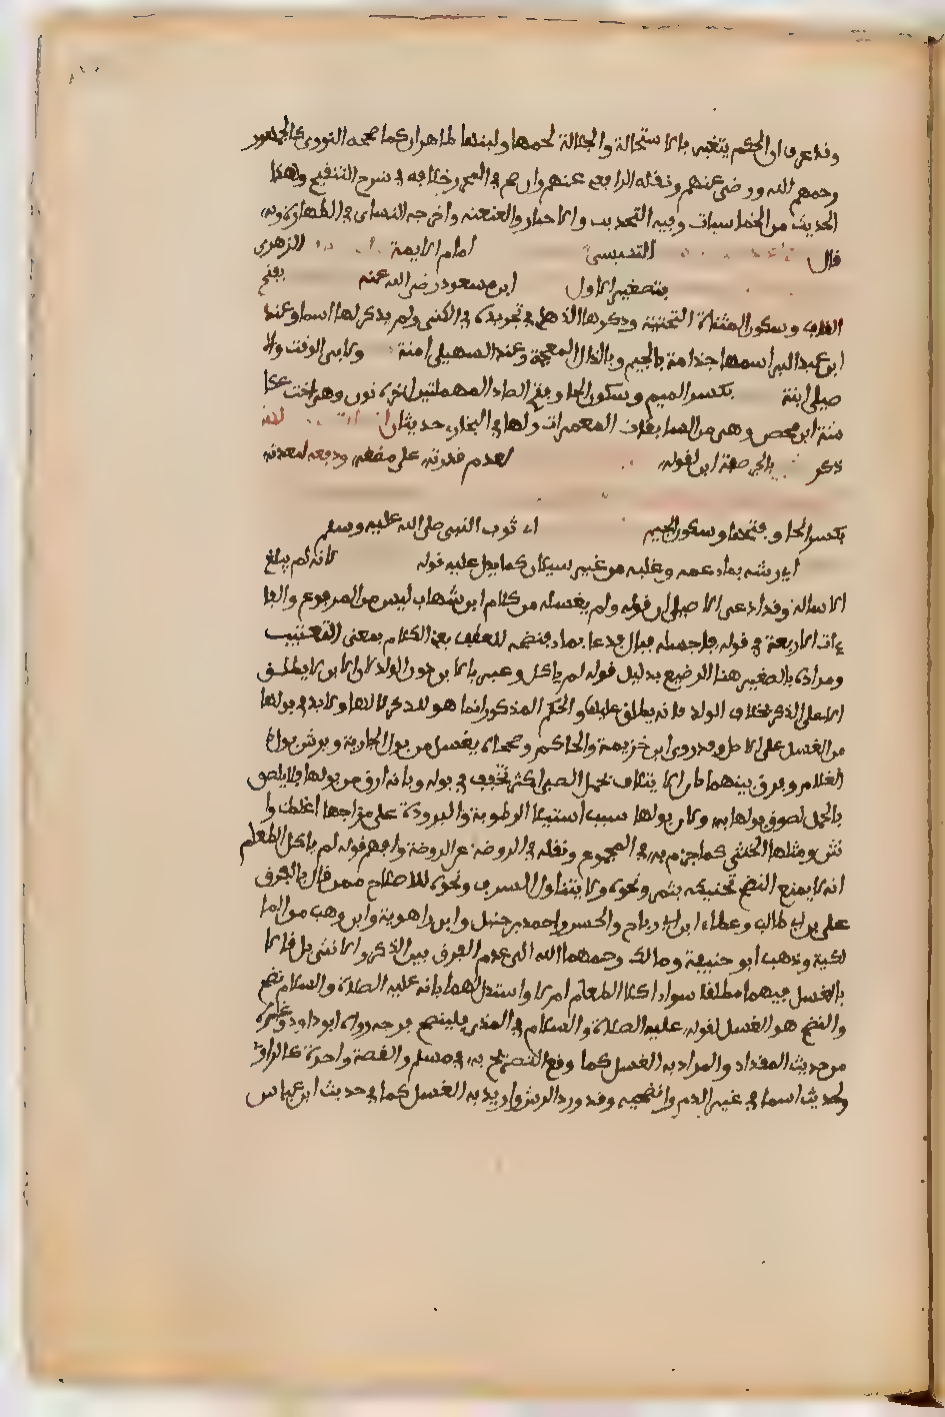 وقد عرف ان الحكم يتغير بالاستحالة والجلالة لحمها ولبنها طاهران كما صححه النووى كالجمهور
رحمهم الله ورضى عنهم ونقله الرافعى عنهم وان صح فى المحرر خلافه فى شرح التنقيح وهذا
الحديث من الخماسيات وفيه التحديث والاخبار والعنعنة واخرجه النساى فى الطهارة وبه
قال التنيسى امام الايمة الزهرى
بتصغير الاول ابن مسعود رضى الله عنه بفتح
القاف وسكون المثناة التحتية وذكرها الذهبى فى تجريده فى الكنى ولم يذكر لها اسما وعند
ابن عبد البر اسمها جذامة بالجيم وبالذال المعجمة وعند السهيلى امنة وكابى الوقت والا
صيلى ابنة بكسر الميم وسكون الحا وفتح الصاد المهملتين اخره نون وهى اخت عكا
شة ابن محصن وهى من السابقات المعمرات ولها فى البخارى حديثان
ذكر بالجر صفة ابن لقوله لعدم قدرته على مضغه ودفعه لمعدته
بكسر الحا وفتحها وسكون الجيم اى ثوب النبى صلى الله عليه وسلم
اى رشه بماء عمه وغلبه من غير سيلان كما يدل عليه قوله لانه لم يبلغ
الاسالة وقد ادعى الاصيلى ان قوله ولم يغسله من كلام ابن شهاب ليس من المرفوع والفا
ءات الاربعة فى قوله فاجلسه فبال فدعا بماء فنضحه للعطف بين الكلام بمعنى التعقيب
ومراده بالصغير هنا الرضيع بدليل قوله لم ياكل وعبر بالابن دون الولد لان الابن لا يطلق
الا على الذكر بخلاف الولد فانه يطلق عليهما والحكم المذكور انما هو للذكر لا لها ولا بد فى بولها
من الغسل على الاصل وقد روى ابن خزيمة والحاكم وصححاه يغسل من بول الجارية ويرش من بول
الغلام وفرق بينهما بان الايتلاف بحمل الصبى اكثر فخفف فى بوله وبانه ارق من بولها فلا يلصق
بالمحل لصوق بولها به ولان بولها بسبب استيلا الرطوبة والبرودة على مزاجها اغلظ وا
نتن ومثلها الخنثى كما جزم به فى المجموع ونقله فى الروضة عن الروضة وافهم قوله لم ياكل الطعام
انه لا يمنع النضح تحنيكه بتمر ونحوه ولا يتناول السفوف ونحوه للاصلاح ممن قال بالفرق
على بن ابى طالب وعطاء ابن ابى رباح والحسن واحمد بن حنبل وابن راهوية وابن وهب من الما
لكية وذهب ابو حنيفة ومالك رحمهما الله الى عدم الفرق بين الذكر والانثى بل قالا
بالغسل فيهما مطلقا سواء اكلا الطعام ام لا واستدل لهما بانه عليه الصلاة والسلام نضح
والنضح هو الغسل لقوله عليه الصلاة والسلام فى المذى فلينضح فرجه رواه ابو داود وغيره
من حديث المقداد والمراد به الغسل كما وقع التصريح به فى مسلم والقصة واحدة كالراوى
ولحديث اسما فى غسل الدم وانضحيه وقد ورد الرش واريد به الغسل كما فى حديث ابن عباس